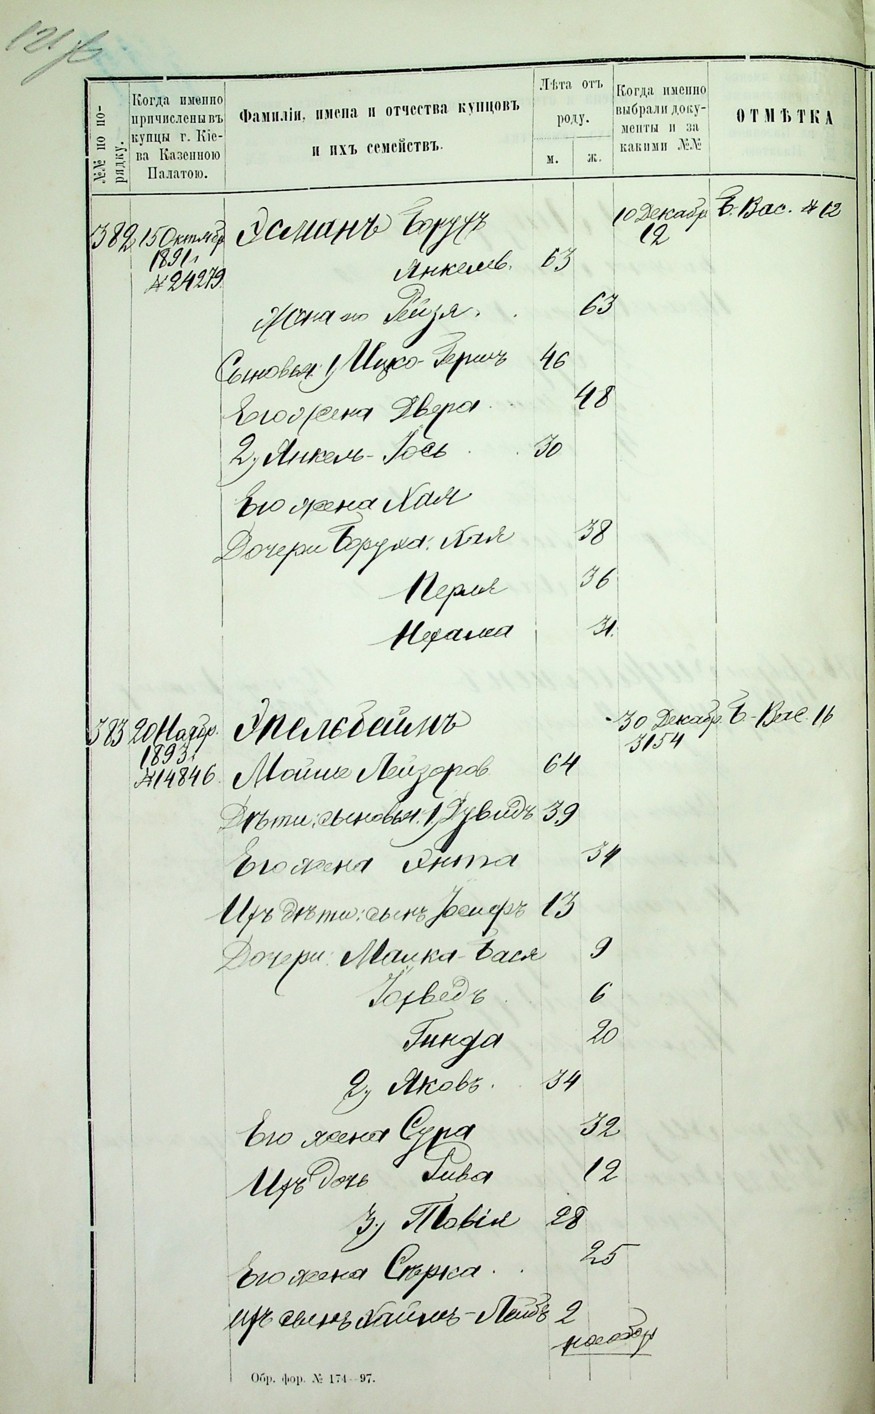 №№ по порядку.
Когда именно причислены въ купцы г. Кіева Казенною Палатою.
Фамиліи, имена и отчества купцовъ и ихъ семействъ.
Лѣта отъ роду.
м. ж.
Когда именно выбрали документы и за какими №№
ОТМѢТКА
382 15 Октябр Эсманъ Борухъ 10 Декабр. Б. Вас. № 12
1891 12
№ 24279 Янкелев. 63
Жена его Рейзя. 63
Сыновья: 1) Ицко-Гершъ 46
Его жена Двера 48
2) Янкель-Іось 30
Его жена Хая
Дочери Боруха: Хая 38
Перля 36
Нехама 31
383 20 Ноябр. Эпельбаймъ 30 Декабр. Б-Вас. 16
1893 3154
№ 14846 Мойше Лейзоров 64
Дѣти: сыновья: 1) Дувидъ 39
Его жена Янта 34
Ихъ дѣти: сынъ Іосифъ 13
Дочери: Малка-Бася 9
Іохведъ 6
Гинда 20
2) Яковъ. 34
Его жена Сура 32
Ихъ дочь Рива 12
3) Товія 28
Его жена Сѣрка 25
Ихъ сынъ Хаимъ-Лейбъ 2
Обр. фор. № 174—97.